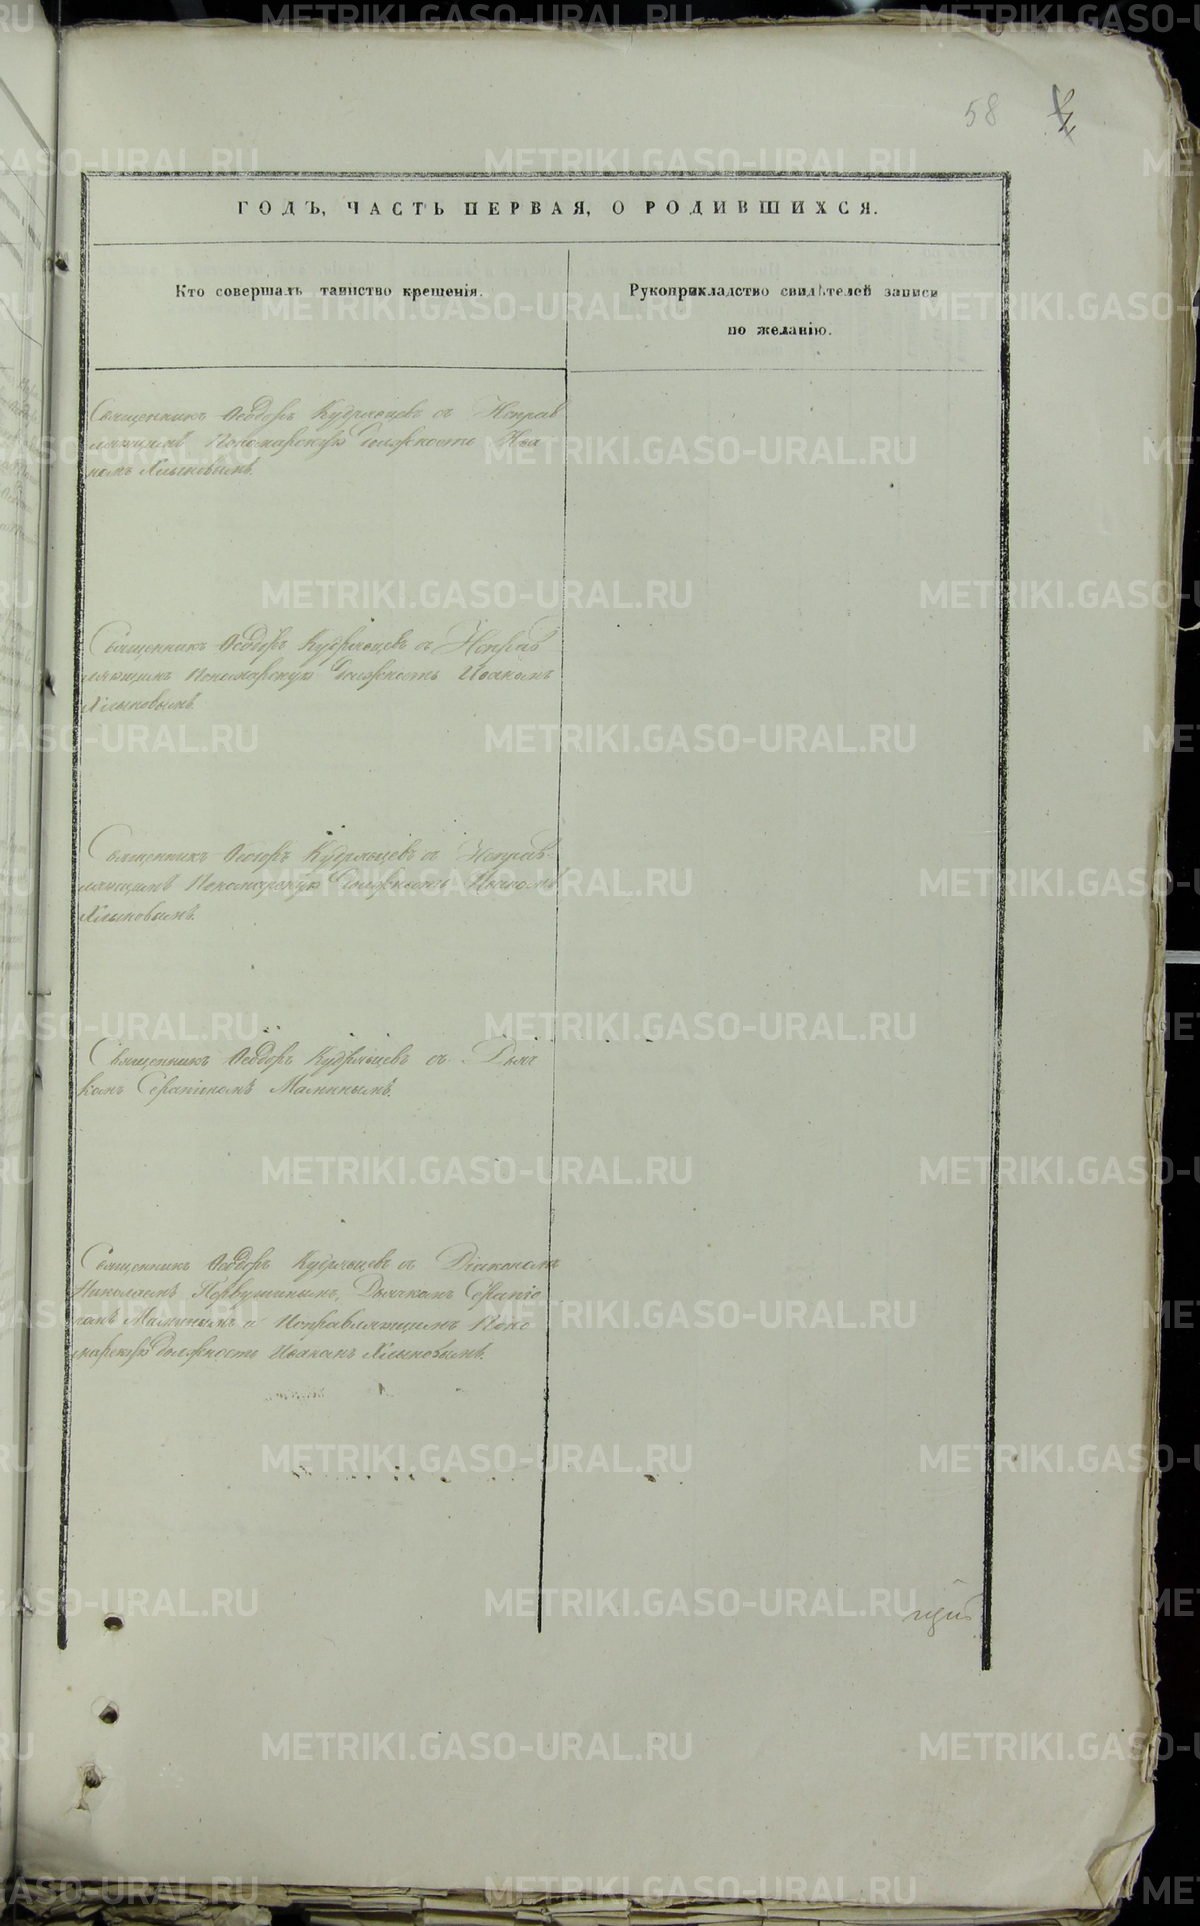 58
ГОДЪ, ЧАСТЬ ПЕРВАЯ, О РОДИВШИХСЯ.
Кто совершалъ таинство крещенія.
Рукоприкладство свидѣтелей записи
по желанію.
Священникъ Ѳеодоръ Кудрявцевъ съ Исправ
ляющимъ Пономарскую должность Ива
номъ Хлыновымъ.
Священникъ Ѳеодоръ Кудрявцевъ съ Исправ
ляющимъ Пономарскую должность Иваномъ
Хлыновымъ.
Священникъ Ѳеодоръ Кудрявцевъ съ Исправ
ляющимъ Пономарскую должность Иваномъ
Хлыновымъ.
Священникъ Ѳеодоръ Кудрявцевъ съ Дьяч
комъ Серапіономъ Малининымъ.
Священникъ Ѳеодоръ Кудрявцевъ съ Діакономъ
Николаемъ Первушинымъ, Дьячкомъ Серапіо
номъ и Исправляющимъ Поно
марскую должность Иваномъ Хлыновымъ.
METRIKI.GASO-URAL.RU